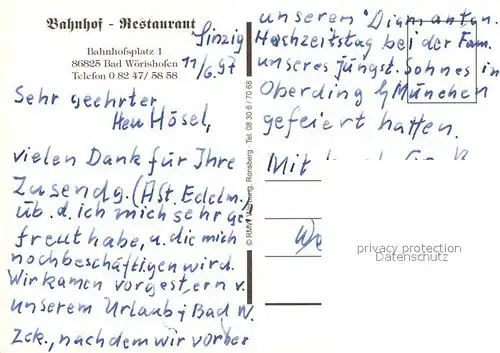 Bahnhof - Restaurant
Bahnhofsplatz 1
86825 Bad Wörishofen
Telefon 0 82 47/ 58 58
Sinzig
11/6.97
Sehr geehrter
Herr Hösel,
vielen Dank für Ihre
Zusendg. (Ast. Edelm.)
üb. d. ich mich sehr ge-
freut habe, u. die mich
noch beschäftigen wird.
Wir kamen vorgestern v.
unserem Urlaub i Bad W.
Zck., nachdem wir vorher
© RMV Werbung, Ronsberg · Tel. 08 30 6 / 70 68
unseren Diamantan.
Hochzeitstag bei der Fam.
unseres jüngst. Sohnes in
Oberding b/ München
gefeiert hatten.
Mit
privacy protection
Datenschutz